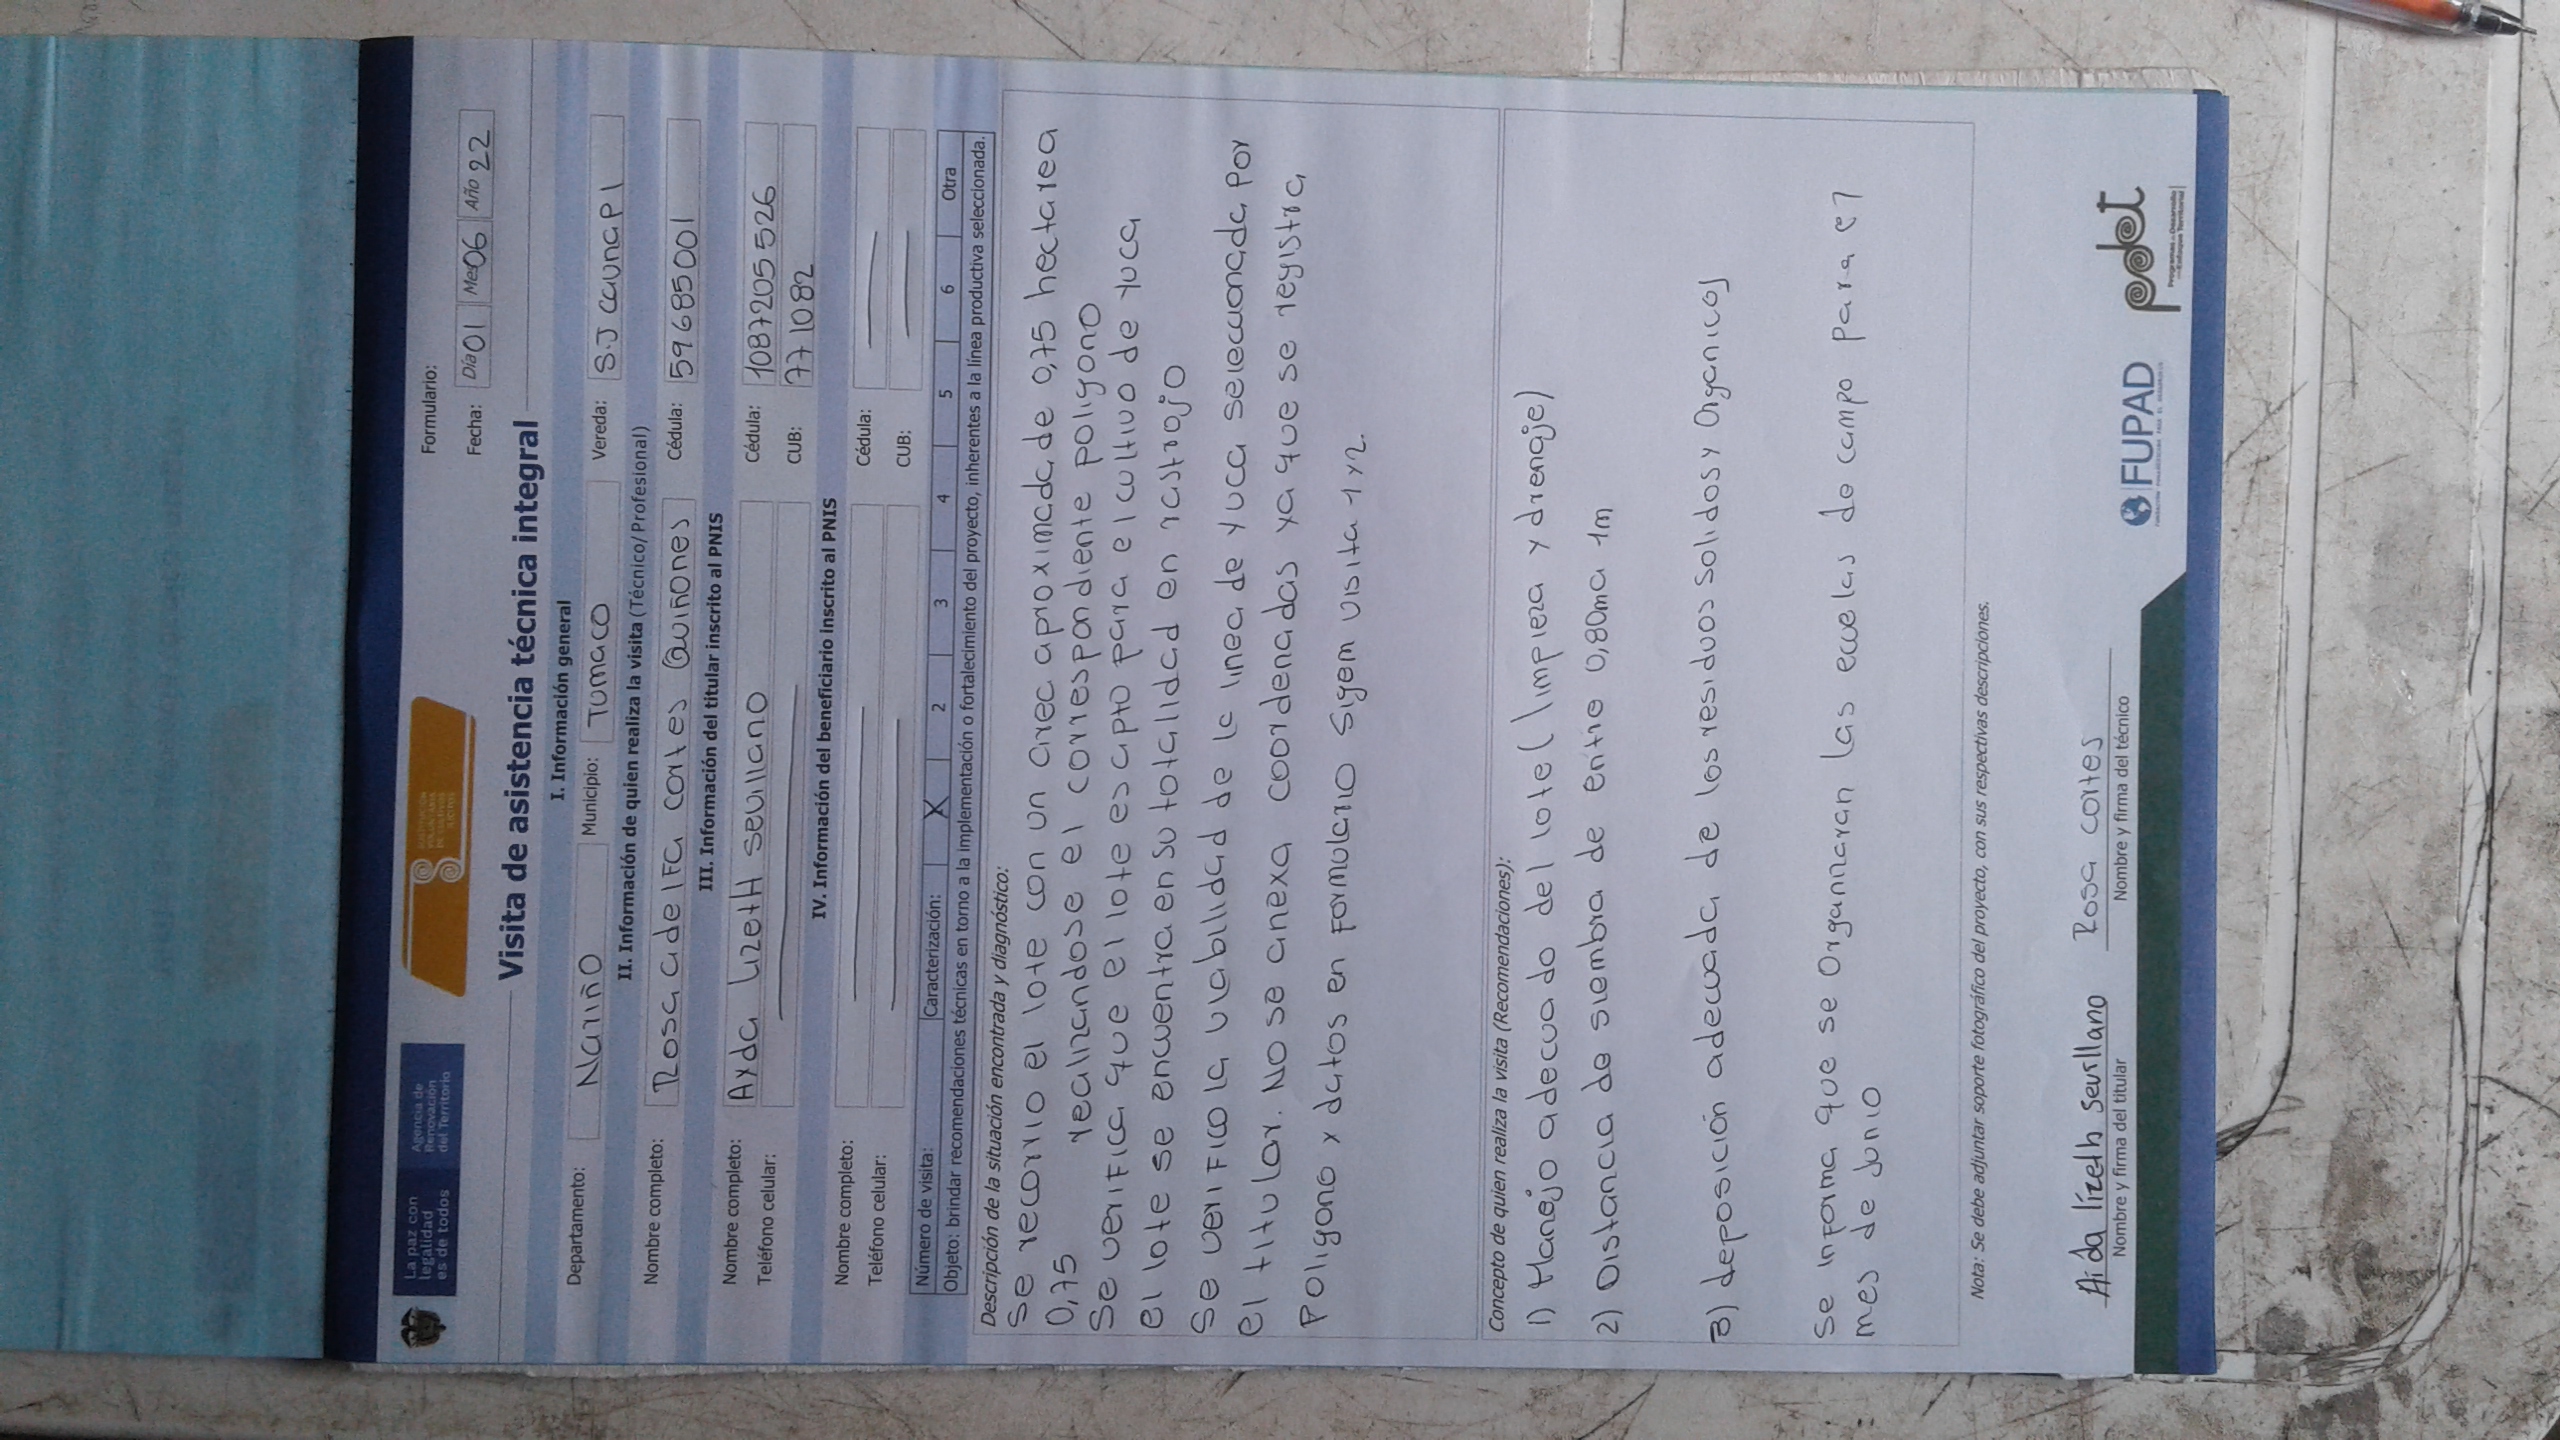 La paz con
legalidad
es de todos
Agencia de
Renovación
del Territorio
SUSTITUCIÓN
VOLUNTARIA
DE CULTIVOS
ILÍCITOS
Formulario:
Fecha: Día 01 Mes 06 Año 22
Visita de asistencia técnica integral
I. Información general
Departamento: Nariño Municipio: Tumaco Vereda: S.J Caunapi
II. Información de quien realiza la visita (Técnico/Profesional)
Nombre completo: Rosa adelfa cortes Quiñones Cédula: 59685001
III. Información del titular inscrito al PNIS
Nombre completo: Ayda Lizeth Sevillano Cédula: 1087205526
Teléfono celular: CUB: 771082
IV. Información del beneficiario inscrito al PNIS
Nombre completo: Cédula:
Teléfono celular: CUB:
Número de visita: Caracterización: X 2 3 4 5 6 Otra
Objeto: brindar recomendaciones técnicas en torno a la implementación o fortalecimiento del proyecto, inherentes a la línea productiva seleccionada.
Descripción de la situación encontrada y diagnóstico:
Se recorrio el lote con un area aproximada de 0,75 hectarea
0,75 realizandose el correspondiente poligono
Se verifica que el lote es apto para el cultivo de yuca
el lote se encuentra en su totalidad en rastrojo
Se verifico la viabilidad de la linea de yuca seleccionada por
el titular. No se anexa coordenadas ya que se registra
Poligono y datos en formulario sygem visita 1 y 2.
Concepto de quien realiza la visita (Recomendaciones):
1) Manejo adecuado del lote (limpieza y drenaje)
2) Distancia de siembra de entre 0,80m a 1m
3) deposición adecuada de los residuos solidos y Organicos
Se informa que se Organnaran las ecuelas de campo para el
mes de Junio
Nota: Se debe adjuntar soporte fotográfico del proyecto, con sus respectivas descripciones.
Aida lizeth sevillano Rosa cortes
Nombre y firma del titular Nombre y firma del técnico
FUPAD
pdet
Programas de Desarrollo
con Enfoque Territorial